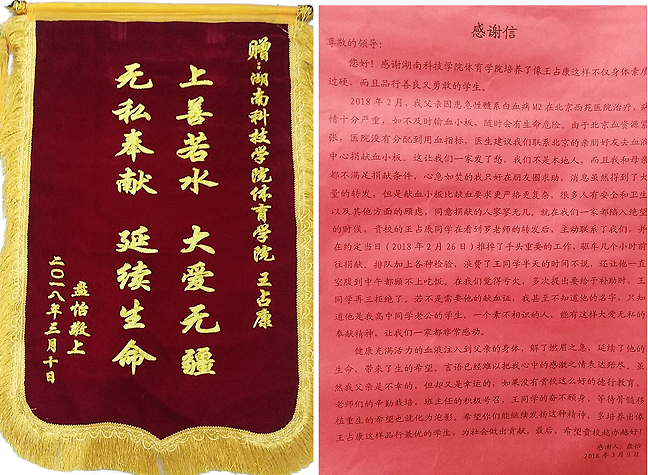 赠:湖南科技学院体育学院 王占康
上善若水 大爱无疆
无私奉献 延续生命
盘怡敬上
二〇一八年三月十日
感谢信
尊敬的领导:
您好!感谢湖南科技学院体育学院培养了像王占康这样不仅身体素质
过硬,而且品行善良又勇敢的学生。
2018年2月,我父亲因患急性髓系白血病M2在北京西苑医院治疗,病
情十分严重,如不及时输血小板,随时会有生命危险。由于北京血资源紧
张,医院没有分配到用血指标,医生建议我们联系北京的亲朋好友去血液
中心捐献血小板,这让我们一家发了愁,我们不是本地人,而且我和母亲
都不满足捐献条件,心急如焚的我只好在朋友圈求助。消息虽然得到了大
量的转发,但是献血小板比献血要求更严格更复杂,很多人有安全和卫生
以及其他方面的顾虑,同意捐献的人寥寥无几,就在我们一家都陷入绝望
的时候,贵校的王占康同学在看到罗老师的转发后,主动联系了我们,并
在约定当日(2018年2月26日)推掉了手头重要的工作,驱车几个小时前
往捐献、排队加上各种检验,浪费了王同学半天的时间不说,还让他一直
空腹到中午都顾不上吃饭。在我们觉得亏欠,多次提出要给予补助时,王
同学再三拒绝了。若不是需要他的献血证,我甚至不知道他的名字,只知
道他是我高中同学老公的学生,一个素不相识的人,能有这样大爱无私的
奉献精神,让我们一家都非常感动。
健康充满活力的血液注入到父亲的身体,解了燃眉之急,延续了他的
生命,带来了生的希望。言语已经难以把我心中的感激之情表达殆尽。虽
然我父亲是不幸的,但却又是幸运的,如果没有贵校这么好的德行教育,
老师们的辛勤栽培,班主任的积极号召,王同学的奋不顾身,等待骨髓移
植重生的希望也就化为泡影。希望你们能继续发扬这种精神,多培养出像
王占康这样品行兼优的学生,为社会做出贡献。最后,希望贵校越办越好!
感谢人:盘怡
2018年3月9日